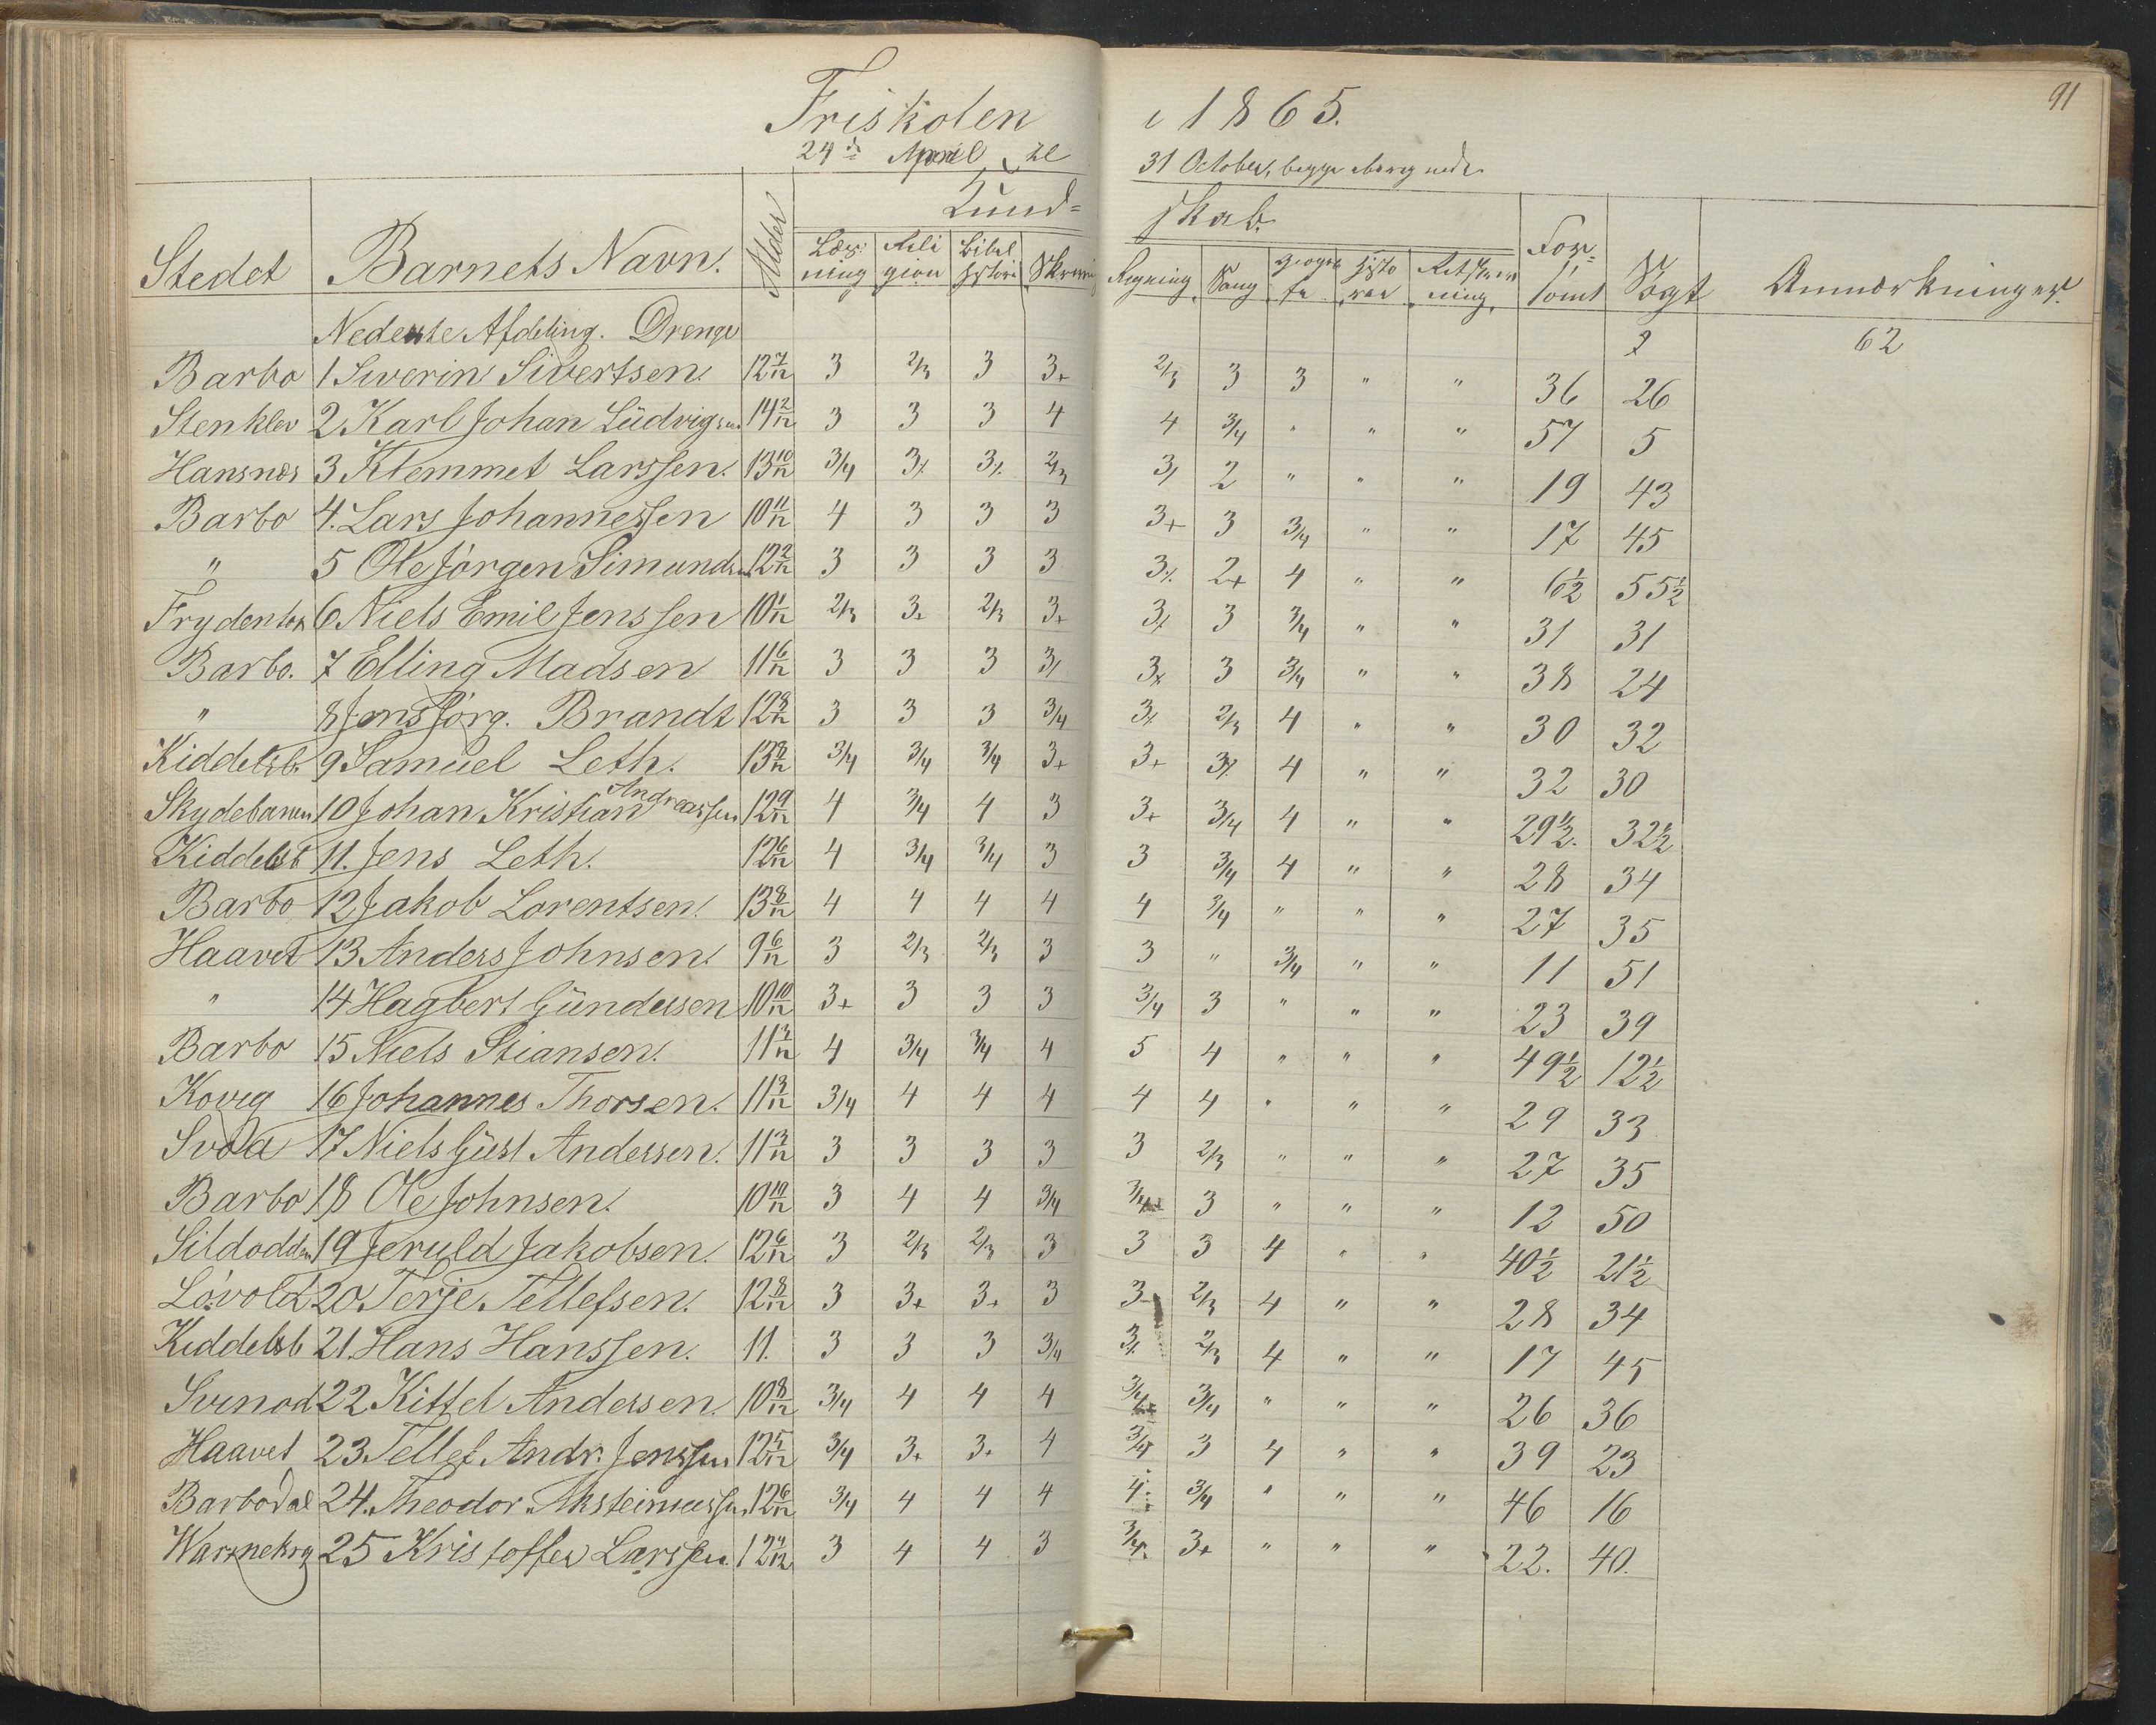 91
Friskolen i 1865.
24de April til 31 October, begge
Stedet Barnets Navn. Alder Kund- skab. For- sømt Søgt Anmærkninger.
Læs- ning Reli gion Bibel historie Skrivn Regning Sang Geogra fi Histo rie Retskriv ning
Nederste Afdeling. Drenge 62
Barbo 1 Siverin Sivertsen. 12 7/12 3 2/3 3 3+ 2/3 3 3 " " 36 26
Stenklev 2 Karl Johan Lüdvigsen 14 2/12 3 3 3 4 4 3/4 " " " 57 5
Hansnes 3 Klemmet Larssen. 13 10/12 3/4 3 3 2/3 3 2 " " " 19 43
Barbo 4. Lars Johannessen 10 11/12 4 3 3 3 3+ 3 3/4 " " 17 45
" 5 Ole Jörgen Simunds 12 2/12 3 3 3 3 3 2+ 4 " " 6½ 55½
6 Niels Emil Jenssen 10 1/12 2/3 3+ 2/3 3+ 3 3 3/4 " " 31 31
Barbo. 7 Elling Madsen 11 6/12 3 3 3 3 3 3 3/4 " " 38 24
" 8 Jens Jörg. Brandt 12 8/12 3 3 3 3/4 3 2/3 4 " " 30 32
Kiddelsb. 9 Samuel Leth. 13 8/12 3/4 3/4 3/4 3+ 3+ 3 4 " " 32 30
Skydebanen 10 Johan Kristian Andreassen 12 9/12 4 3/4 4 3 3+ 3/4 4 " " 29½. 32½
Kiddelsb 11. Jens Leth. 12 6/12 4 3/4 3/4 3 3 3/4 4 " " 28 34
Barbo 12 Jakob Lorentsen. 13 8/12 4 4 4 4 4 3/4 " " " 27 35
Haavet 13 Anders Johnsen. 9 6/12 3 2/3 2/3 3 3 " 3/4 " " 11 51
" 14 Hagbert Gündersen 10 10/12 3+ 3 3 3 3/4 3 " " " 23 39
Barbo 15 Niels Stiansen. 11 3/12 4 3/4 3/4 4 5 4 " " " 49½ 12½
Kovig 16 Johannes Thorsen. 11 3/12 3/4 4 4 4 4 4 " " " 29 33
Svoda 17 Niels Güst Andersen. 11 3/12 3 3 3 3 3 2/3 " " " 27 35
Barbo 18 Ole Johnsen. 10 10/12 3 4 4 3/4 3/4 3 " " " 12 50
Sildodden 19 Jeruld Jakobsen. 12 6/12 3 2/3 2/3 3 3 3 4 " " 40½ 21½
Lövold 20 Terje Tellefsen. 12 8/12 3 3+ 3+ 3 3 2/3 4 " " 28 34
Kiddelsb 21. Hans Hanssen. 11. 3 3 3 3/4 3 2/3 4 " " 17 45
Svinod 22 Kittel Andersen. 10 8/12 3/4 4 4 4 3/4 3/4 " " " 26 36
Haavet 23. Tellef Andr. Jenssen 12 5/12 3/4 3+ 3+ 4 3/4 3 4 " " 39 23
Barbodal 24. Theodor 12 6/12 3/4 4 4 4 4 3/4 " " " 46 16
25 Kristoffer Larssen. 12 3 4 4 3 3/4 3+ " " " 22. 40.